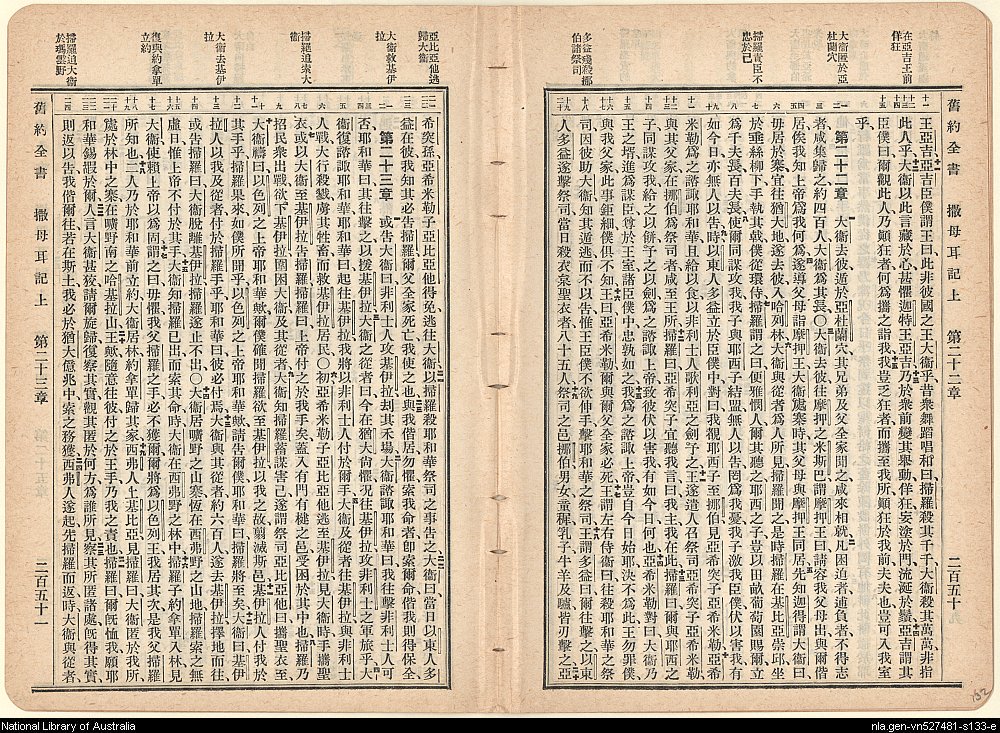 在亞吉王前
佯狂
大衛匿於亞
杜蘭穴
掃羅責臣不
忠於己
多益殘殺挪
伯諸祭司
舊約全書 撒母耳記上 第二十二章 二百五十九
王亞吉亞吉臣僕謂王曰此非彼國之王大衛乎昔衆舞蹈唱和曰掃羅殺其千千大衛殺其萬萬非指
此人乎大衛以此言藏於心甚懼迦特王亞吉乃於衆前變其舉動佯狂妄塗於門流涎於鬚亞吉謂其
臣僕曰爾觀此人乃顚狂者何爲攜之詣我我豈乏狂者而攜至我所顚狂於我前夫夫也豈可入我室
乎
第二十二章 大衛去彼逃於亞杜蘭穴其兄弟及父全家聞之咸來相就凡困迫者逋負者不得志
者咸集歸之約四百人大衛爲其長〇大衛去彼往摩押之米斯巴謂摩押王曰請容我父母出與爾偕
居俟我知上帝爲我何爲遂導父母詣摩押王大衛處寨時其父母與摩押王同居先知迦得謂大衛曰
毋居於寨宜往猶大地遂去彼入哈列林大衛與從者爲人所見掃羅聞之是時掃羅在基比亞崇邱坐
於垂絲柳下手執其戟僕從環侍掃羅謂之曰便雅憫人爾其聽之耶西之子豈以田畝葡萄園賜爾
爲千夫長百夫長使爾同謀攻我我子與耶西子結盟無人以告罔爲我憂我子激我臣僕伏以害我有
如今日亦無人以告時以東人多益立於臣僕中對曰我覩耶西子至挪伯見亞希突子亞希米勒亞希
米勒爲之諮諏耶和華且給以食以非利士人歌利亞之劍予之王遂遣人召祭司亞希突子亞希米勒
與其父家在挪伯爲祭司者咸至王所掃羅曰亞希突子宜聽我言曰我主我在此掃羅曰爾與耶西之
子同謀攻我給之以餅予之以劍爲之諮諏上帝致彼伏以害我有如今日何也亞希米勒對曰大衛乃
王之壻進爲謀臣尊於王室諸臣僕中忠孰如之我爲之諮諏上帝豈自今日始耶決不爲此王勿罪僕
與我父家此事鉅細僕俱不知王曰亞希米勒爾與爾父全家必死王謂左右侍衛曰往殺耶和華之祭
司因彼助大衛知其遁逃而不以告惟王臣僕不欲伸手擊耶和華之祭司王謂多益曰爾往擊之以東
人多益遂擊祭司當日殺衣枲聖衣者八十五人祭司之邑挪伯男女童穉乳子牛羊及驢皆刃擊之亞
亞比亞他逃
歸大衛
大衛救基伊
拉
掃羅追索大
衛
大衛去基伊
拉
復與約拿單
立約
掃羅追大衛
於瑪雲野
希突孫亞希米勒子亞比亞他得免逃往大衛以掃羅殺耶和華祭司之事告之大衛曰當日以東人多
益在彼我知其必告掃羅爾父全家死亡我使之也與我偕居勿懼索我命者卽索爾命偕我則得保全
第二十三章 或告大衛曰非利士人攻基伊拉刦其禾場大衛諮諏耶和華曰我往擊非利士人可
否耶和華曰其往擊之以援基伊拉大衛之從者曰今在猶大尙懼況往基伊拉攻非利士之軍旅乎大
衛復諮諏耶和華耶和華曰起往基伊拉我將以非利士人付於爾手大衛及從者往基伊拉與非利士
人戰大行殺戮虜其牲畜而救基伊拉居民〇初亞希米勒子亞比亞他逃至基伊拉見大衛時手攜聖
衣或以大衛至基伊拉告掃羅掃羅曰上帝付之於我手矣蓋入有門有楗之邑受困於其中也掃羅乃
招民衆出戰欲下基伊拉圍困大衛及其從者大衛知掃羅蓄謀害己遂謂祭司亞比亞他曰攜聖衣至
大衛禱曰以色列之上帝耶和華歟爾僕確聞掃羅欲至基伊拉以我之故翦滅斯邑基伊拉人付我於
其手乎掃羅果來如僕所聞乎以色列之上帝耶和華歟請告爾僕耶和華曰掃羅將至矣大衛曰基伊
拉人以我及從者付於掃羅手乎耶和華曰彼必付焉大衛與其從者約六百人遂去基伊拉擇地而往
或告掃羅曰大衛脫離基伊拉掃羅遂止不出〇大衛居曠野之山寨恆在西弗野之山地掃羅日索大
衛惟上帝不付於其手大衛知掃羅已出而索其命時大衛在西弗野之林中掃羅子約拿單入林見
大衛使賴上帝以爲固謂之曰毋懼我父掃羅之手必不獲爾爾將爲以色列王我居其次是我父掃羅
所知也二人乃於耶和華前立約大衛居林約拿單歸其家西弗人上基比亞見掃羅曰大衛匿於我所
處於林中之寨在曠野南之哈基拉山王歟隨意往彼付之於王手乃我之責也掃羅曰爾旣恤我願耶
和華錫嘏於爾人言大衛甚狡請爾旋歸復察其實觀其匿於何方爲誰所見察其所匿諸處旣得其實
則返以告我我偕爾往若在斯土我必於猶大億兆中索之務獲西弗人遂起先掃羅而返時大衛與從者
舊約全書 撒母耳記上 第二十三章 二百五十一
National Library of Australia
nla.gen-vn527481-s133-e